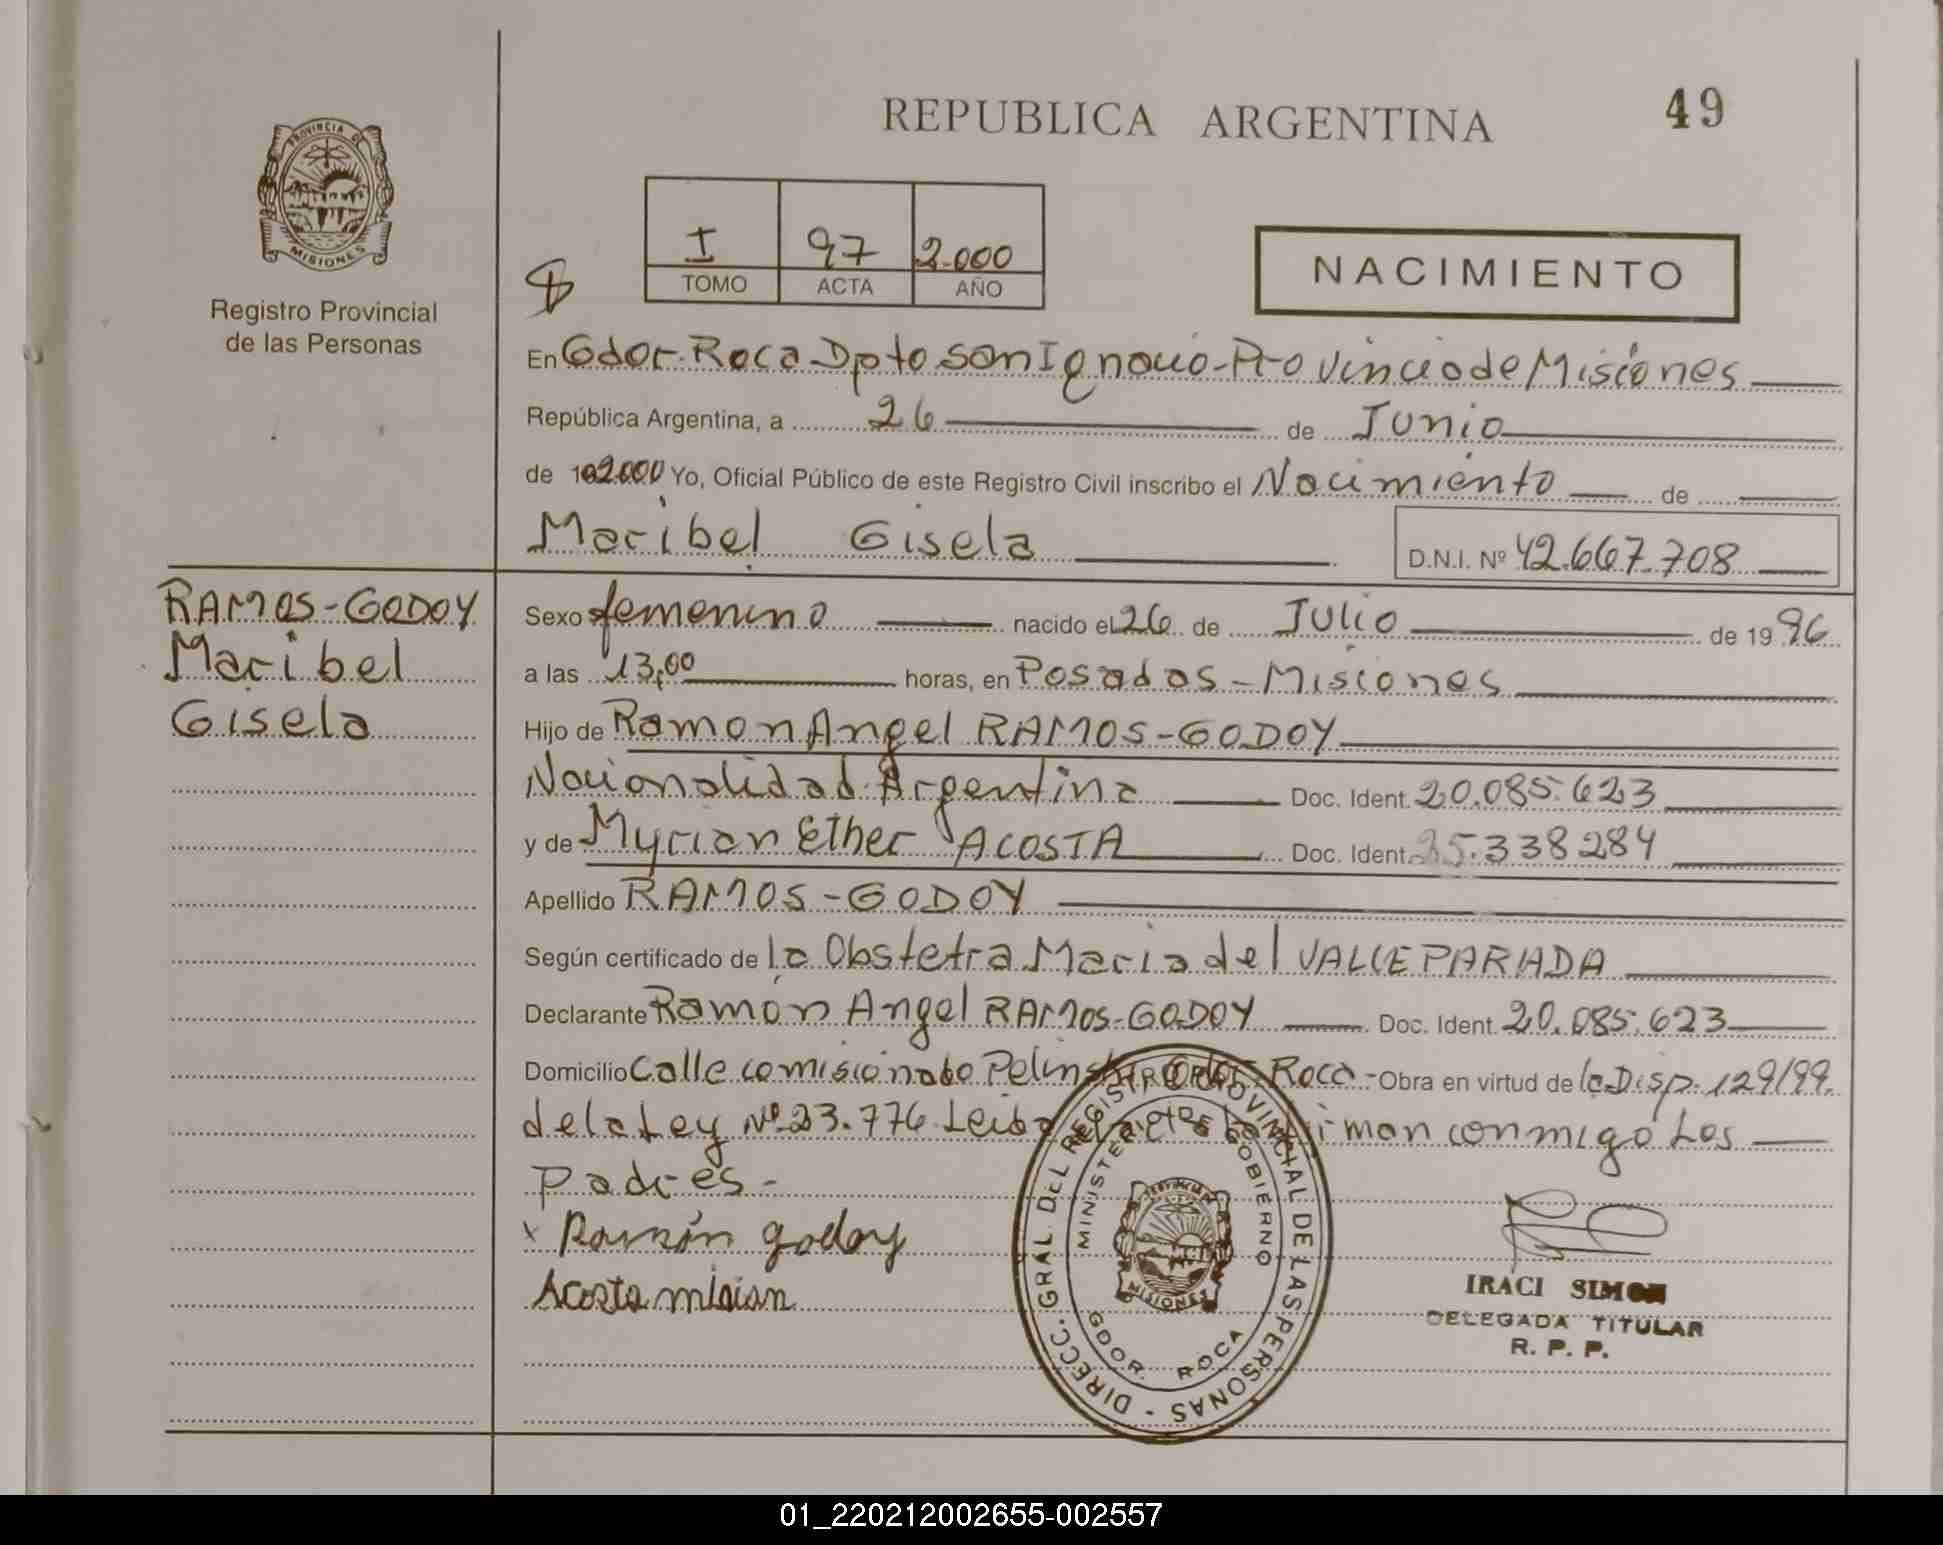 REPUBLICA ARGENTINA
49
PROVINCIA DE
MISIONES
Registro Provincial
de las Personas
I 97 2.000
TOMO ACTA AÑO
NACIMIENTO
En Gdor. Roca Dpto San Ignacio - Provincia de Misiones
República Argentina, a 26 de Junio
de 2.000 Yo, Oficial Público de este Registro Civil inscribo el Nacimiento de
Maribel Gisela D.N.I. Nº 42.667.708
RAMOS-GODOY
Maribel
Gisela
Sexo femenino nacido el 26 de Julio de 19 96
a las 13,00 horas, en Posadas - Misiones
Hijo de Ramon Angel RAMOS-GODOY
Nacionalidad Argentina Doc. Ident. 20.085.623
y de Myrian Ether ACOSTA Doc. Ident. 25.338284
Apellido RAMOS-GODOY
Según certificado de la Obstetra Maria del VALLE PARADA
Declarante Ramón Angel RAMOS-GODOY Doc. Ident. 20.085.623
Domicilio Calle comisionado Gdor Roca - Obra en virtud de la Disp. 129/99.
de la Ley Nº 23.776 Leida el acta la firman conmigo Los
Padres -
x Ramón godoy
Acosta mirian
DIRECC. GRAL. DEL REGISTRO PROVINCIAL DE LAS PERSONAS -
MINISTERIO DE GOBIERNO
PROVINCIA DE
MISIONES
GDOR. ROCA
IRACI SIMON
DELEGADA TITULAR
R. P. P.
01_220212002655-002557